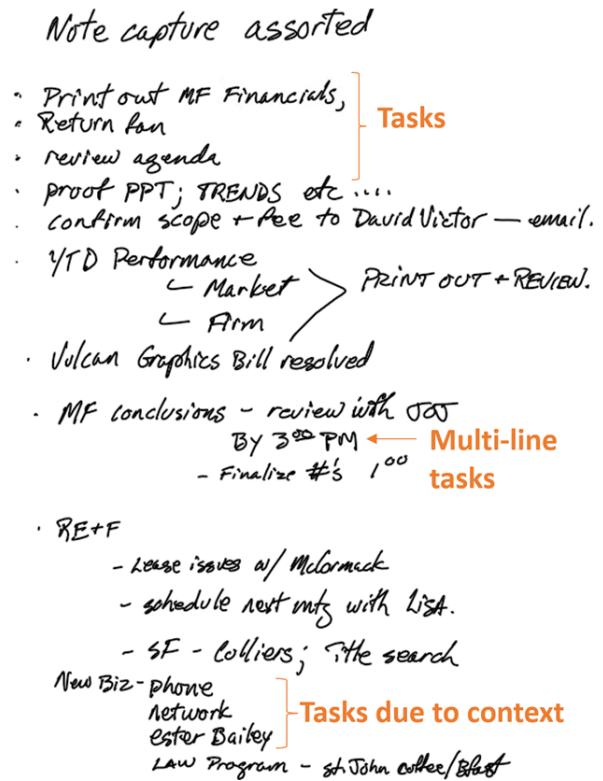 Note capture assorted
• Print out MF Financials,
• Return fan
Tasks
• review agenda
• proof PPT; TRENDS etc....
• confirm scope + fee to David Victor — email.
• YTD Performance
Market
PRINT OUT + REVIEW.
Firm
• Vulcan Graphics Bill resolved
• MF conclusions – review with JOJ
BY 3:00 PM
Multi-line
tasks
– Finalize #'s 1:00
• RE+F
– Lease issues w/ McCormack
– schedule next mtg with LISA.
– SF – Colliers; Title search
New Biz – phone
network
Tasks due to context
ester Bailey
LAW Program – st. John coffee/Bfast